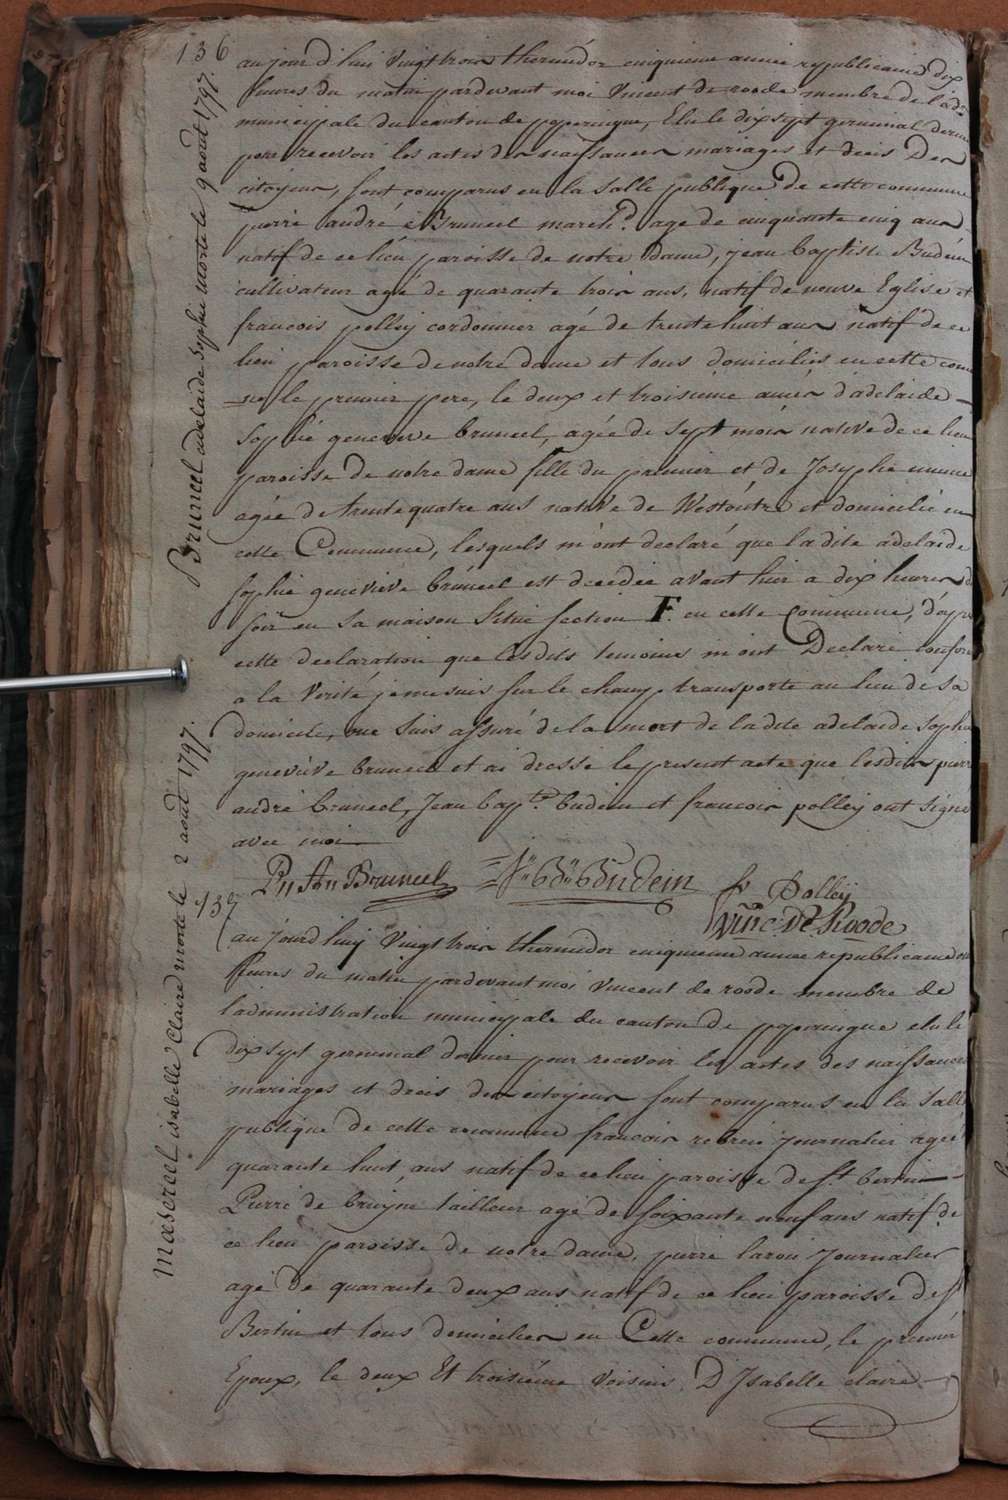 136
Bruneel adelaide Sophie morte le 9 aout 1797.
aujour d'hui vingt trois thermidor cinquieme année republicaine dix
heures du matin pardevant moi Vincent de roode membre de l'ad.
municipale du canton de poperingue, Elu le dix sept germinal dernier
pour recevoir les actes des naissances mariages et décès Des
citoyens, sont comparus en la Salle publique de cette commune
pierre andré Bruneel march.d agé de cinquante cinq ans
natif de ce lieu paroisse de notre dame, jean baptiste Budein
cultivateur agé de quarante trois ans, natif de neuve Eglise et
francois polley cordonnier agé de trente huit ans natif de ce
lieu paroisse de notre dame et tous domiciliés en cette com
ne le premier pere, le deux et troisieme amis d'adelaide
Sophie genevieve bruneel, agée de Sept mois native de ce lieu
paroisse de notre dame fille du premier et de Josephe
agée de trente quatre ans native de Westoutre et domicilié en
cette Commune, lesquels m'ont declaré que la dite adelaide
Sophie genevieve bruneel est decedée avant hier a dix heures du
soir en sa maison Situé Section F. en cette Commune, d'apres
cette declaration que lesdits temoins m'ont Declaré conforme
a la verité je me suis sur le champ transporté au lieu de sa
domicile, me suis assuré de la mort de la dite adelaide Sophie
genevieve bruneel et ai dressé le present acte que lesdits pierre
andré bruneel, Jean bap.te budein et francois polley ont signé
avec moi
Bruneel Budein fs Polley
Vinc. De Roode
137
Maesereel isabelle Claire morte le 2 aout 1797.
aujourd'huy vingt trois thermidor cinquieme année republicaine
heures du matin pardevant moi Vincent de roode membre de
l'administration municipale du canton de poperingue elu le
dix sept germinal dernier pour recevoir les actes des naissances
mariages et decès des citoyens sont comparus en la Salle
publique de cette commune francois journalier agé
quarante huit ans natif de ce lieu paroisse de St. bertin
Pierre de bruyne tailleur agé de soixante neuf ans natif de
ce lieu paroisse de notre dame, pierre laron journalier
agé de quarante deux ans natif de ce lieu paroisse de St
Bertin et tous domiciliés en Cette commune, le premier
Epoux, le deux Et troisiéme voisins D'Isabelle claire